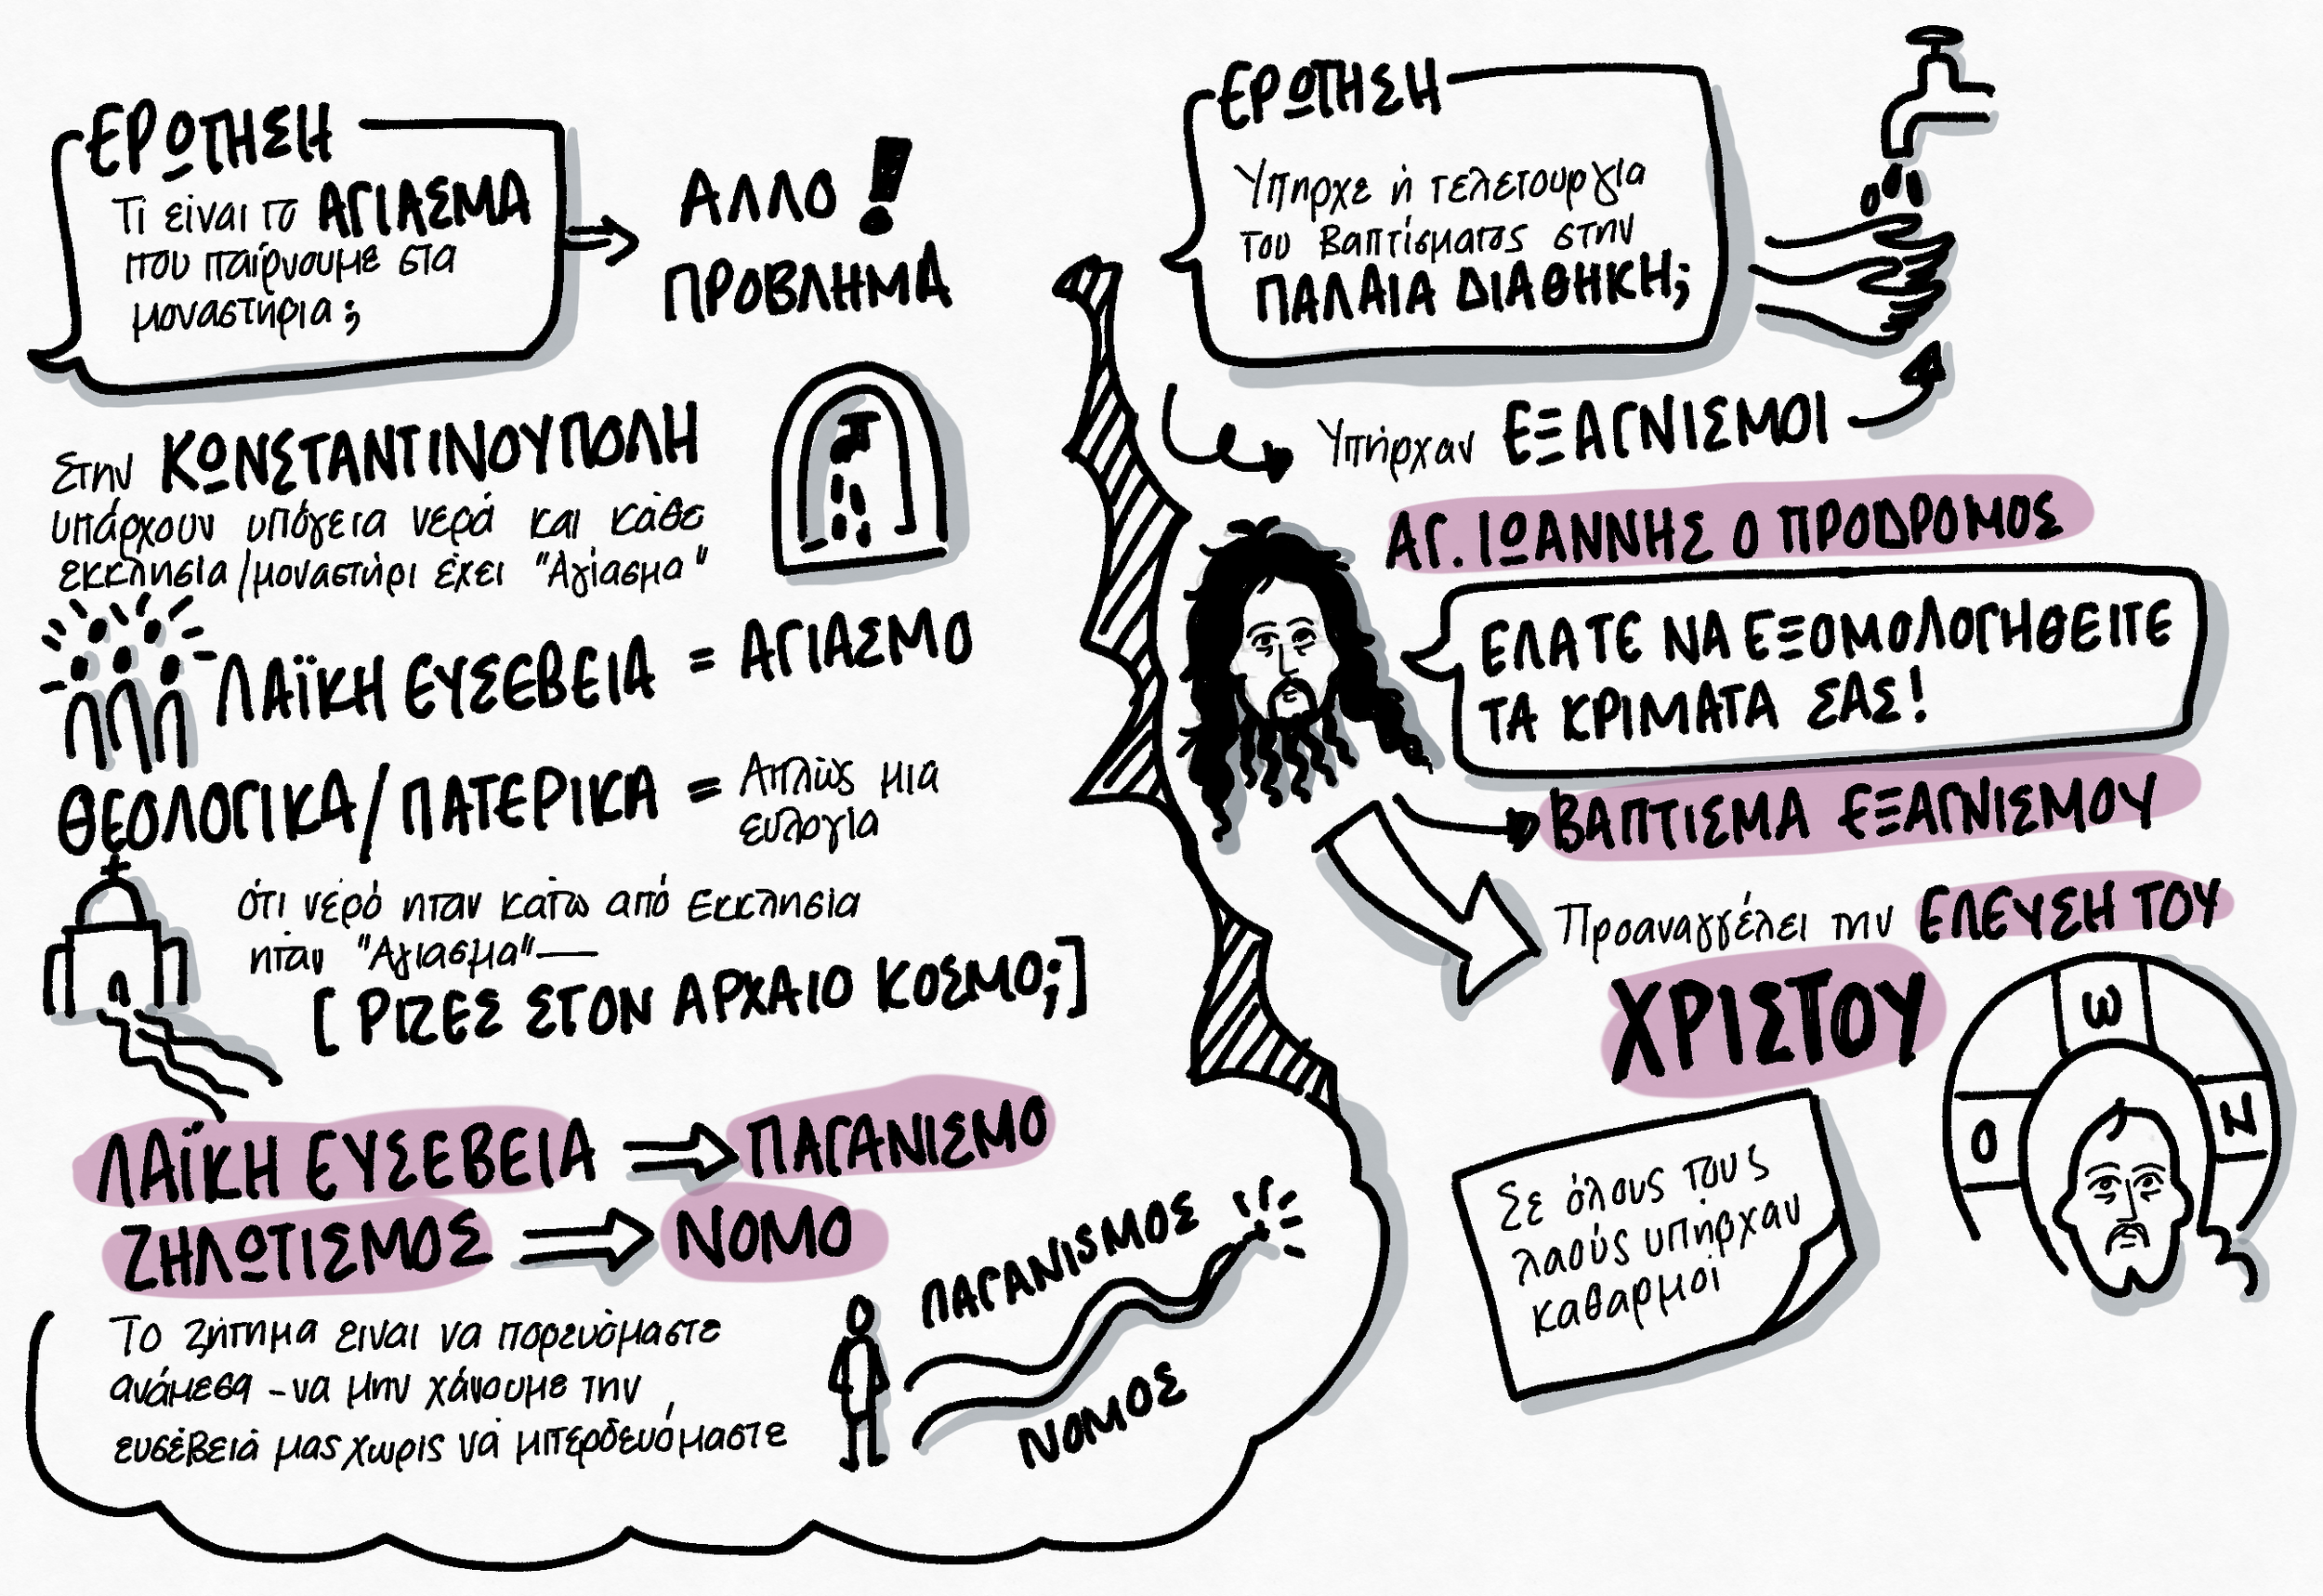 ΕΡΩΤΗΣΗ
Τι είναι το ΑΓΙΑΣΜΑ
που παίρνουμε στα
μοναστήρια;
ΑΛΛΟ!
ΠΡΟΒΛΗΜΑ
Στην ΚΩΝΣΤΑΝΤΙΝΟΥΠΟΛΗ
υπάρχουν υπόγεια νερά και κάθε
εκκλησία/μοναστήρι έχει "Αγίασμα"
ΛΑΪΚΗ ΕΥΣΕΒΕΙΑ = ΑΓΙΑΣΜΟ
ΘΕΟΛΟΓΙΚΑ/ΠΑΤΕΡΙΚΑ = Απλώς μια
ευλογία
ότι νερό ηταν κάτω από Εκκλησία
ηταν "Αγιασμα" —
[ΡΙΖΕΣ ΣΤΟΝ ΑΡΧΑΙΟ ΚΟΣΜΟ;]
ΛΑΪΚΗ ΕΥΣΕΒΕΙΑ ⇒ ΠΑΓΑΝΙΣΜΟ
ΖΗΛΩΤΙΣΜΟΣ ⇒ ΝΟΜΟ
Το ζήτημα ειναι να πορευόμαστε
ανάμεσα - να μην χάνουμε την
ευσέβειά μας χωρις να μπερδευόμαστε
ΠΑΓΑΝΙΣΜΟΣ
ΝΟΜΟΣ
ΕΡΩΤΗΣΗ
Υπηρχε ή τελετουργία
του βαπτίσματος στην
ΠΑΛΑΙΑ ΔΙΑΘΗΚΗ;
Υπήρχαν ΕΞΑΓΝΙΣΜΟΙ
ΑΓ. ΙΩΑΝΝΗΣ Ο ΠΡΟΔΡΟΜΟΣ
ΕΛΑΤΕ ΝΑ ΕΞΟΜΟΛΟΓΗΘΕΙΤΕ
ΤΑ ΚΡΙΜΑΤΑ ΣΑΣ!
ΒΑΠΤΙΣΜΑ ΕΞΑΓΝΙΣΜΟΥ
Προαναγγέλει την ΕΛΕΥΣΗ ΤΟΥ
ΧΡΙΣΤΟΥ
Ο ω Ν
Σε όλους τους
λαούς υπήρχαν
καθαρμοί